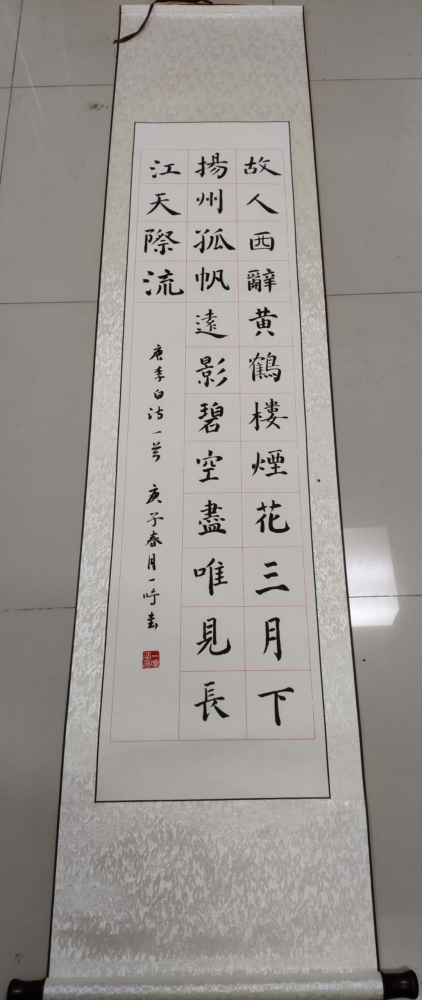 故人西辭黄鶴楼煙花三月下
揚州孤帆遠影碧空盡唯見長
江天際流
唐李白诗一首 庚子春月一峰書